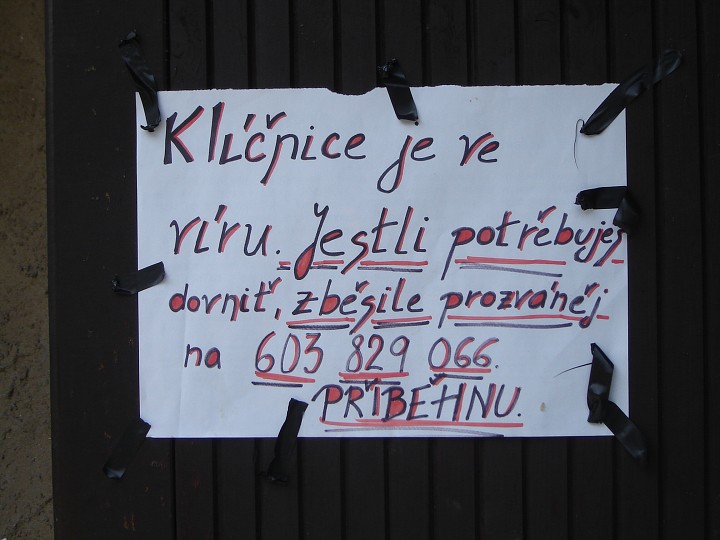 Klíčnice je ve
víru. Jestli potřebuješ
dovnitř, zběsile prozváněj
na 603 829 066.
PŘIBĚHNU.